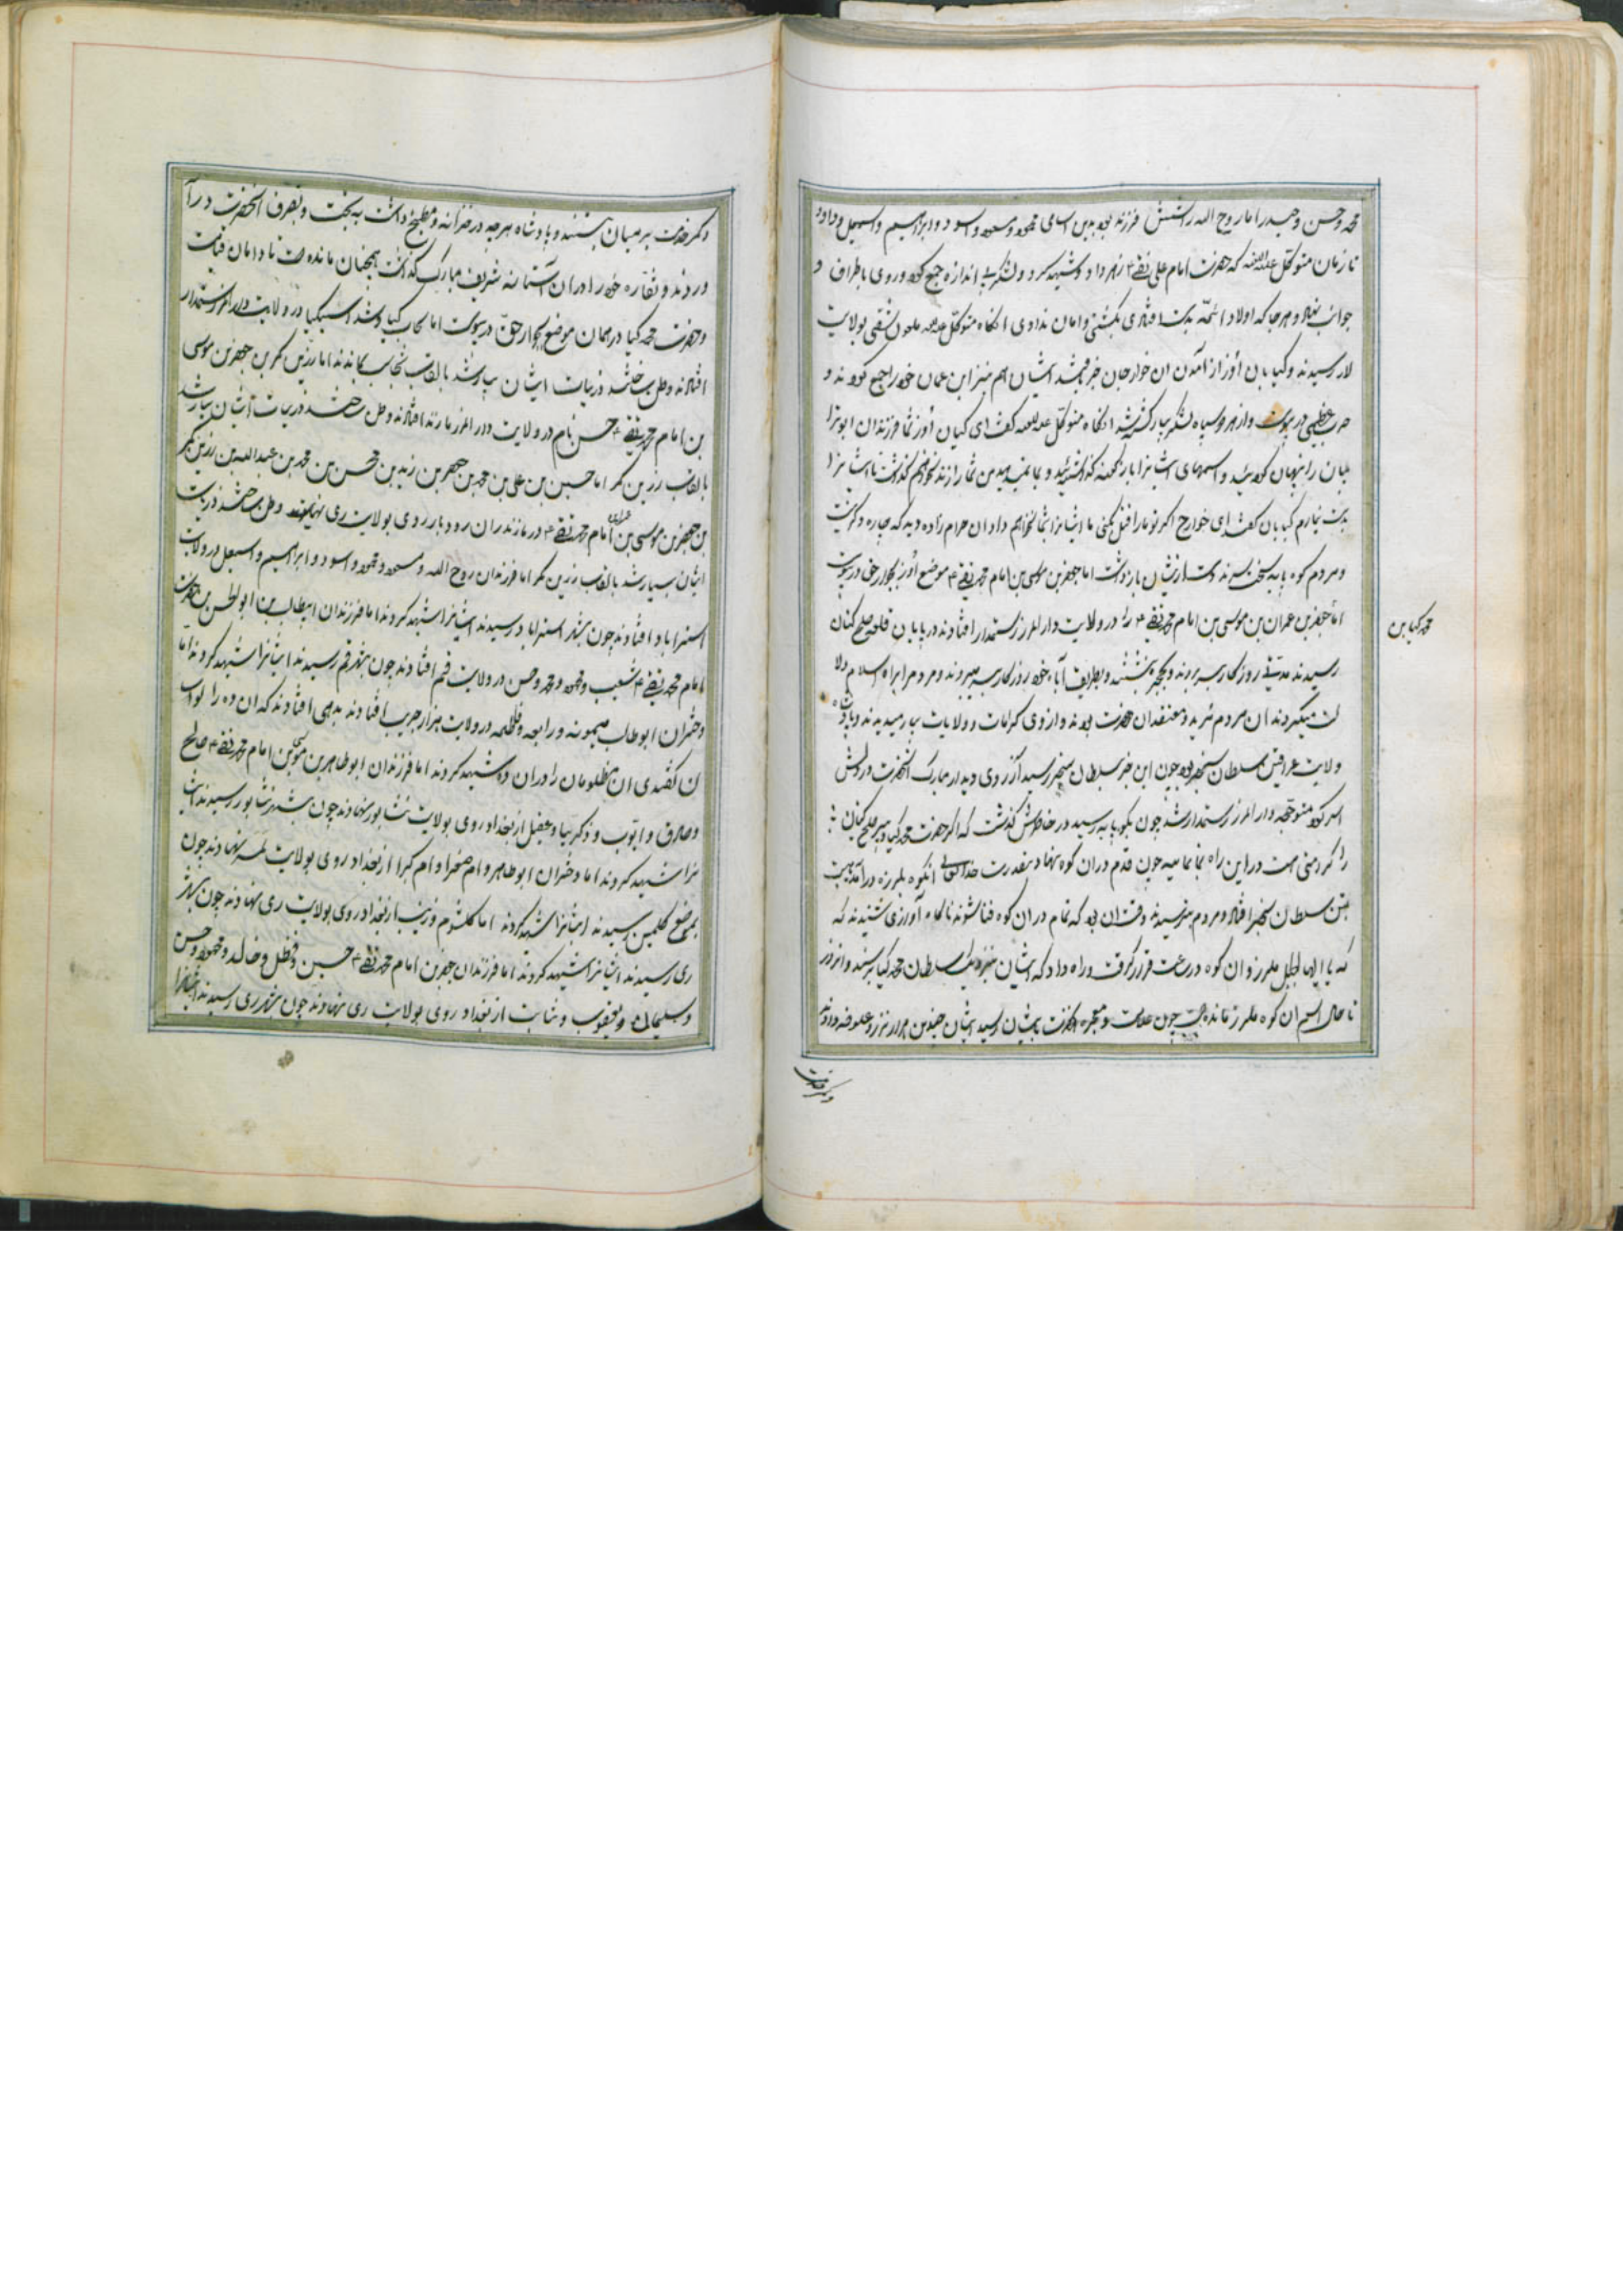 محمد وحسن وحیدر اما روح الله را شش فرزند بود بدین اسامی محمود ومسعود واسود وابراهیم واسمعیل وداود
تا زمان متوکل علیه اللعنه که حضرت امام علی نقی ع زهر داد وشهید کرد ولشکر بی اندازه جمع کرد وروی باطراف و
جوانب نهاد وهر جا که اولاد ائمه بدست افتادی بکشتی وامان ندادی انگاه متوکل علیه اللعنه ملعون شقی بولایت
لار رسیدند وکیایان از آمدن ان خوارجان خبر ایشان هم نیز ابن عمان خود را جمع کردند و
حرب عظیمی در پیوست واز هر دو سپاه لشکر بسیار کشته شد انگاه متوکل علیه اللعنه گفت ای کیایان شما فرزندان ابوترا
بیان را پنهان کرده اید واسبهای ایشانرا من شما را زنده نخواهم گذاشت تا ایشانرا
بدست نیارم کیایان گفتند ای خوارج اگر تو ما را قتل بکنی ما ایشانرا بشما نخواهیم داد ان حرام زاده دید که چاره دگر نیست
ومردم کوه پایه سخت دست از ایشان بازداشت اما جعفر بن موسی بن امام محمد تقی ع موضع بجوار حق در پیوست
اما جعفر بن عمران بن موسی بن امام محمد تقی ع در ولایت دار المرز رستمدار افتادند در پایان قلعه صلح کنان
محمد کیا بن
رسیدند مدتی روزگار بسر بردند وبطریق آباء خود روزگار بسر میبردند ومردم را براه اسلام دلا
لت میکردند ان مردم مرید ومعتقد ان حضرت بودند واز وی کرامات وولایات بسیار میدیدند وپادشاه
ولایت عراقین سلطان سنجر بود چون این خبر بسلطان سنجر رسید آرزوی دیدار مبارک انحضرت در دلش
اثر کرد متوجه دار المرز رستمدار شد چون بکوه پایه رسید در خاطرش گذشت که اگر حضرت محمد کیا دبیر صلح کنان
را کرامتی هست در این راه بما نماید چون قدم در ان کوه نهاد بقدرت خدایتعالی انکوه بلرزه درآمد هیبت
بتن سلطان سنجر افتاد ومردم بترسیدند وقت ان بود که تمام در ان کوه فنا شوند ناگاه آوازی شنیدند که
که یا ایها الجبل ملرز وان کوه در ساعت قرار گرفت وراه داد که ایشان بنزدیک سلطان محمد کیا برسند وانروز
تا حال اسم ان کوه ملرز مانده است چون علامت ومعجزه انحضرت بایشان رسید ایشان چندین هزار نذر وعلوفه دادند
وکمر خدمت
وکمر خدمت بر میان بستند وپادشاه هر چه در خزانه ومطبخ داشت به تحت وتصرف انحضرت درآ
وردند ونقاره خود را در ان آستانه شریف مبارک گذاشت همچنان مانده است تا دامان قیامت
وحضرت محمد کیا در همان موضع بجوار حق در پیوست اما در ولایت دار المرز رستمدار
افتادند ووطن ساختند ذریات ایشان بسیار شد بالقاب اما زرین کمر بن جعفر بن موسی
بن امام محمد تقی ع حسن نام در ولایت دار المرز افتادند ووطن ساختند ذریات ایشان بسیار شد
بالقاب زرین کمر اما حسین بن علی بن محمد بن جعفر بن زید بن محسن بن محمد بن عبدالله بن زرین کمر
بن جعفر بن عمران بن موسی بن امام محمد تقی ع در مازندران رودبار روی بولایت ری نهادند ووطن ساختند ذریت
ایشان بسیار شد بالقاب زرین کمر اما فرزندان روح الله ومسعود ومحمود واسود وابراهیم واسمعیل در ولایت
استراباد افتادند چون بشهر استراباد رسیدند ایشانرا شهید کردند اما فرزندان ابیطالب بن ابوالحسن بن حضرت
امام محمد تقی ع شعیب ومحمود ومحمد وحسن در ولایت قم افتادند چون بشهر قم رسیدند ایشانرا شهید کردند اما
دختران ابوطالب میمونه ورابعه وفاطمه در ولایت هزار جریب افتادند بدهی افتادند که ان ده را لوا
سان گفتندی ان مظلومان را در ان ده شهید کردند اما فرزندان ابوطاهر بن موسی بن امام محمد تقی ع صالح
وصادق وایوب وذکریا وعقیل از بغداد روی بولایت نشابور نهادند چون بشهر نشابور رسیدند ایشا
نرا شهید کردند اما دختران ابوطاهر وام صغرا وام کبرا از بغداد روی بولایت نهادند چون
بموضع کلمین رسیدند ایشانرا شهید کردند اما کلثوم وزینب از بغداد روی بولایت ری نهادند چون بشهر
ری رسیدند ایشانرا شهید کردند اما فرزندان جعفر بن امام محمد تقی ع حسین وفضل وخالد ومحمود وحسن
وسلیمان ویعقوب وثابت از بغداد روی بولایت ری نهادند چون بشهر ری رسیدند ایشانرا